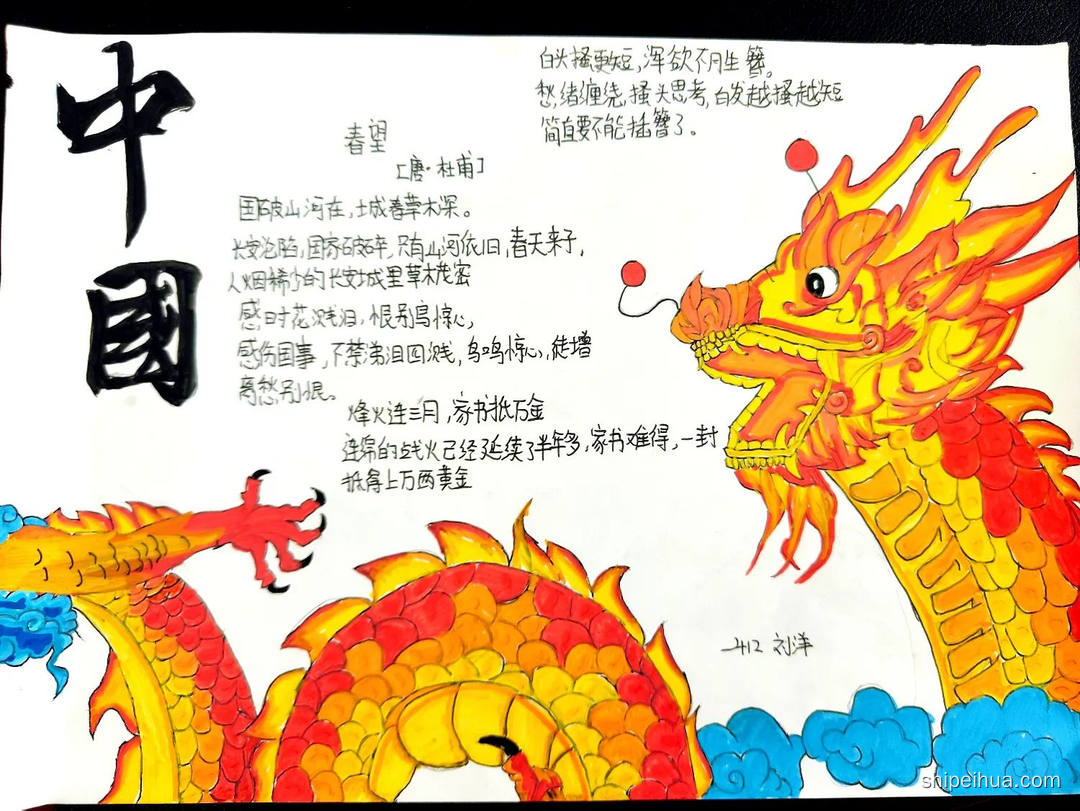 中國
春望
［唐·杜甫］
国破山河在，城春草木深。
长安沦陷，国家破碎，只有山河依旧，春天来了，
人烟稀少的长安城里草木茂密
感时花溅泪，恨别鸟惊心，
感伤国事，不禁涕泪四溅，鸟鸣惊心，徒增
离愁别恨。
烽火连三月，家书抵万金
连绵的战火已经延续了半年多，家书难得，一封
抵得上万两黄金
白头搔更短，浑欲不胜簪。
愁绪缠绕，搔头思考，白发越搔越短
简直要不能插簪了。
412 刘洋
shipeihua.com